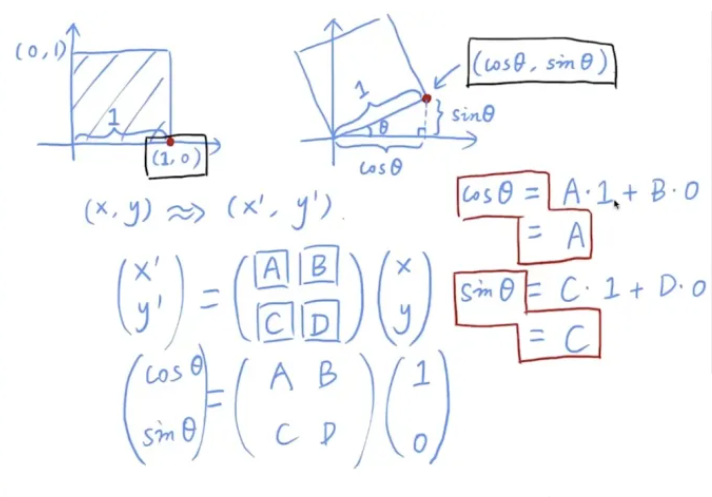 (0,1)
1
(1,0)
1
θ
cosθ
sinθ
(cosθ, sinθ)
(x,y) ⇝ (x', y').
(x' y') = (A B C D) (x y)
(cosθ sinθ) = (A B C D) (1 0)
cosθ = A·1 + B·0
= A
sinθ = C·1 + D·0
= C